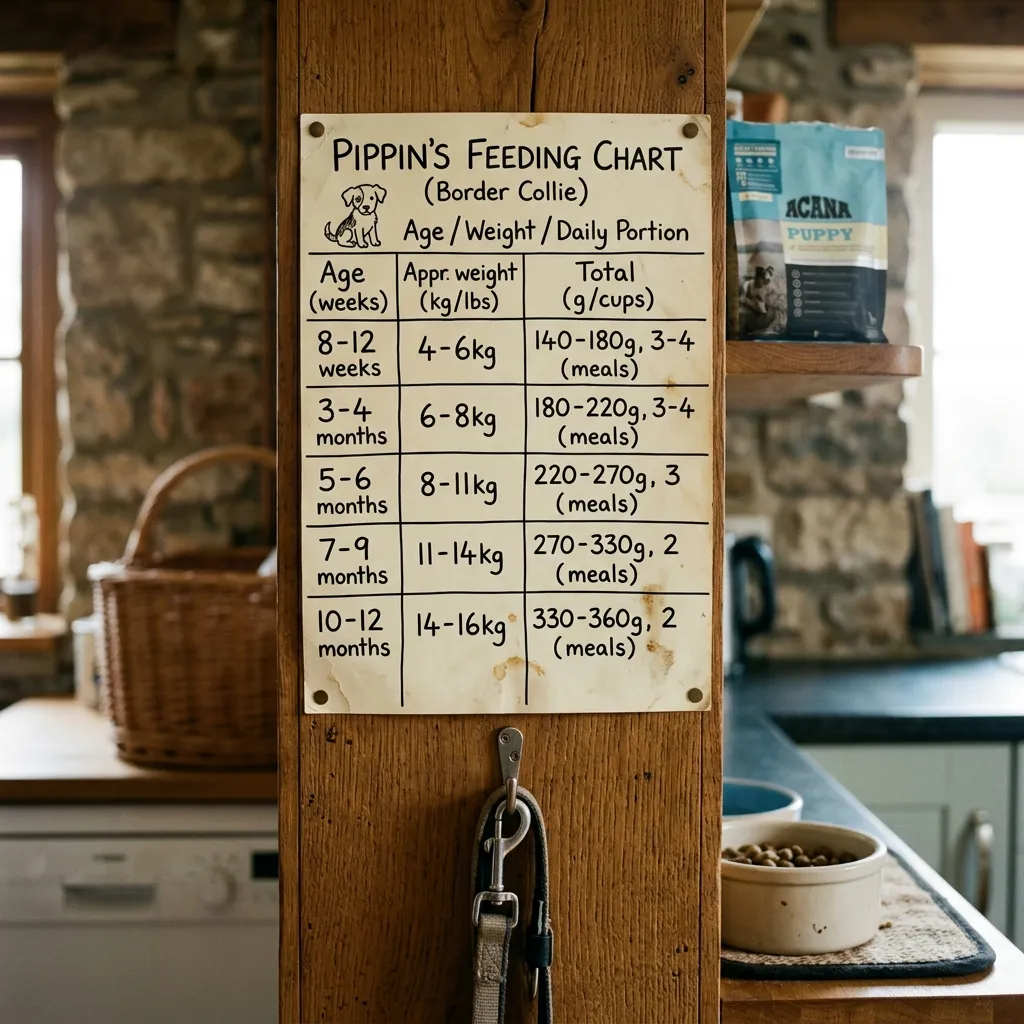 PIPPIN'S FEEDING CHART
(Border Collie)
Age / Weight / Daily Portion
Age
(weeks)
Appr. weight
(kg/lbs)
Total
(g/cups)
8-12
weeks
4-6kg
140-180g, 3-4
(meals)
3-4
months
6-8kg
180-220g, 3-4
(meals)
5-6
months
8-11kg
220-270g, 3
(meals)
7-9
months
11-14kg
270-330g, 2
(meals)
10-12
months
14-16kg
330-360g, 2
(meals)
ACANA
PUPPY